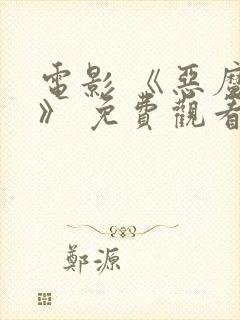 電影 《惡魔
》 免費觀看
鄭源